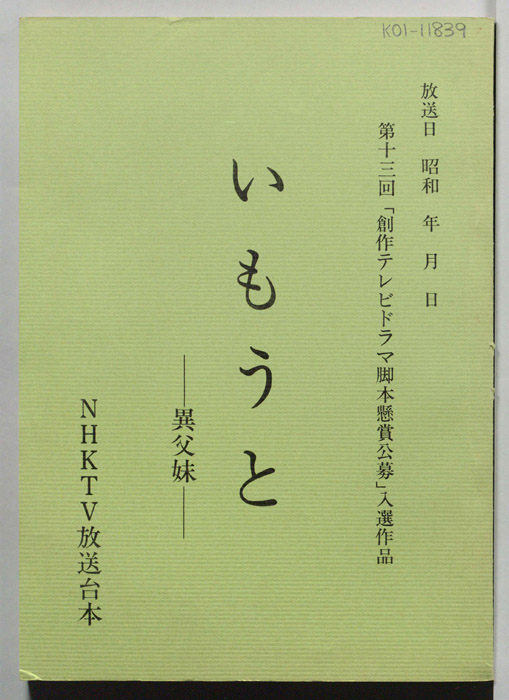 K01-11839
放送日 昭和 年 月 日
第十三回「創作テレビドラマ脚本懸賞公募」入選作品
いもうと
――異父妹――
NHKTV放送台本